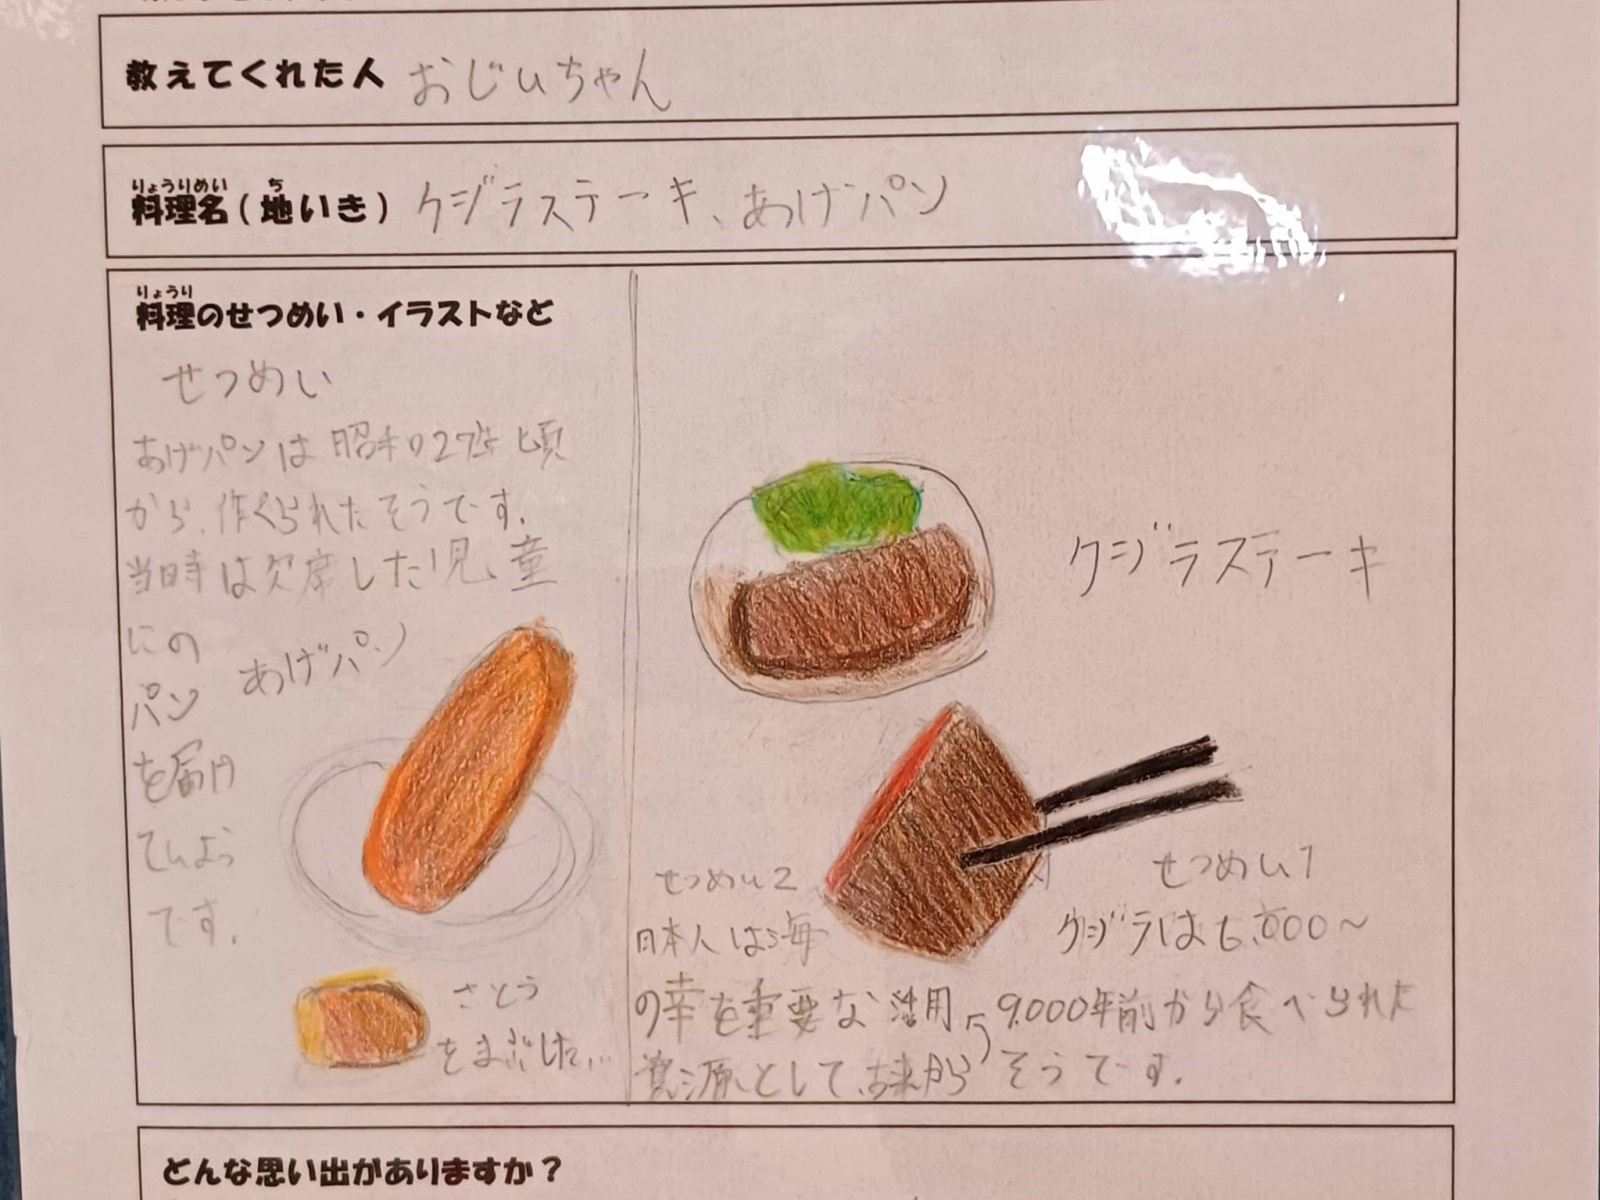 教えてくれた人 おじいちゃん
りょうりめい ち
料理名(地いき) クジラステーキ、あげパン
りょうり
料理のせつめい・イラストなど
せつめい
あげパンは昭和27年頃
から、作くられたそうです。
当時は欠席した児童
にの
パン
を届け
てぃよう
です。
あげパン
さとう
をまぶした...
クジラステーキ
せつめい1
クジラは5,000〜
9,000年前から食べられた
そうです。
せつめい2
日本人は海
の幸を重要な活用
資源として、古来から
どんな思い出がありますか?